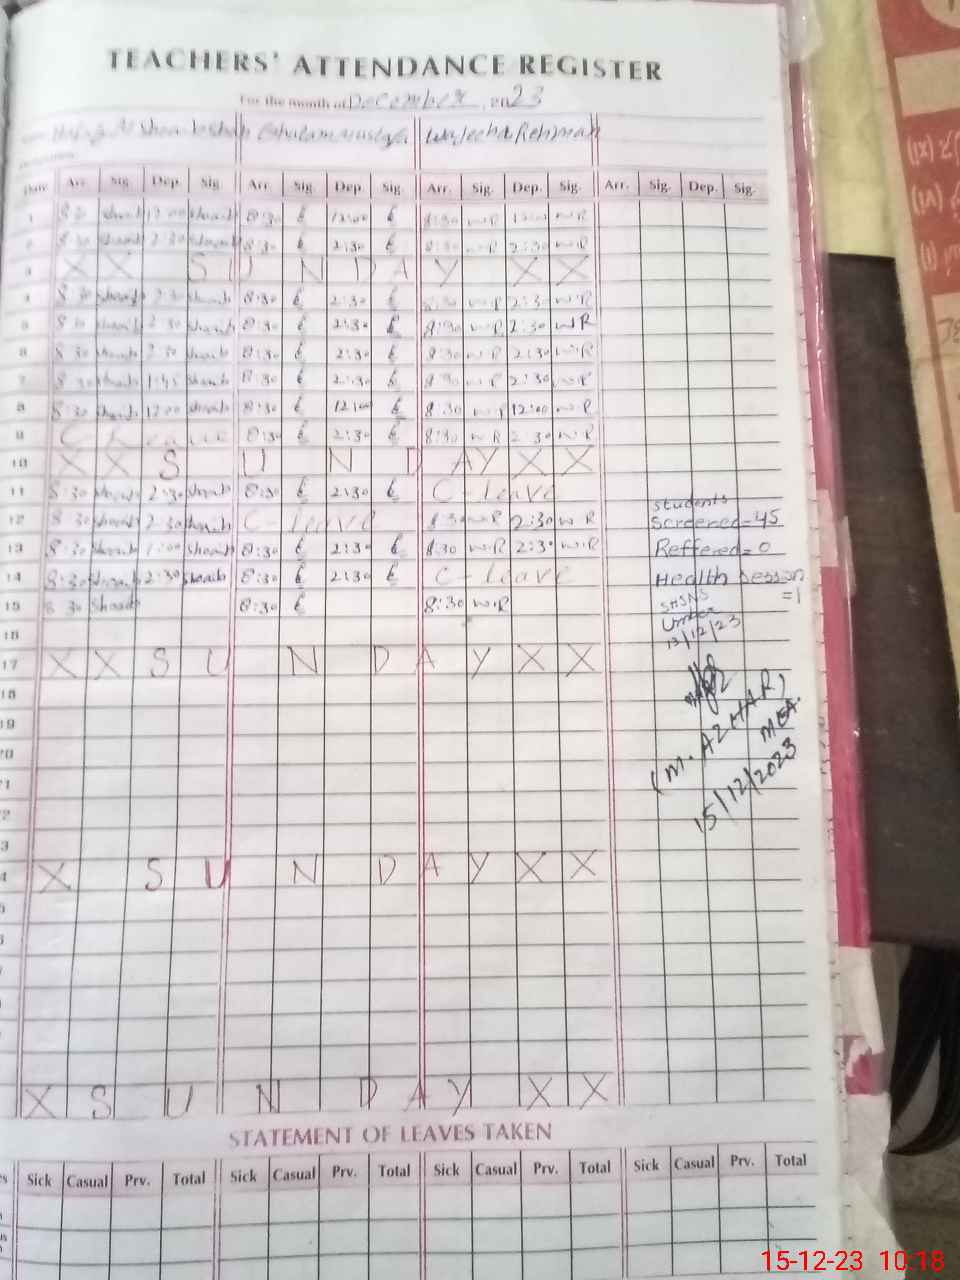 TEACHERS' ATTENDANCE REGISTER
For the month of December, 2023
Shoaib Shah Ghulam Mustafa Wajeeha Rehman
Date Arr. Sig. Dep. Sig. Arr. Sig. Dep. Sig. Arr. Sig. Dep. Sig. Arr. Sig. Dep. Sig.
1 8:30 shoaib 12:00 shoaib 8:30 12:00 8:30 W.R 12:00 W.R
2 8:30 shoaib 2:30 shoaib 8:30 2:30 8:30 W.R 2:30 W.R
3 X X S U N D A Y X X
4 8:30 shoaib 2:30 shoaib 8:30 2:30 8:30 W.R 2:30 W.R
5 8:30 shoaib 2:30 shoaib 8:30 2:30 8:30 W.R 2:30 W.R
6 8:30 shoaib 2:30 shoaib 8:30 2:30 8:30 W.R 2:30 W.R
7 8:30 shoaib 1:45 shoaib 8:30 2:30 8:30 W.R 2:30 W.R
8 8:30 shoaib 12:00 shoaib 8:30 12:00 8:30 W.R 12:00 W.R
9 C Leave 8:30 2:30 8:30 W.R 2:30 W.R
10 X X S U N D A Y X X
11 8:30 shoaib 2:30 shoaib 8:30 2:30 C-leave
12 8:30 shoaib 2:30 shoaib C-leave 8:30 W.R 2:30 W.R
13 8:30 shoaib 1:00 shoaib 8:30 2:30 8:30 W.R 2:30 W.R
14 8:30 shoaib 2:30 shoaib 8:30 2:30 C-leave
15 8:30 shoaib 8:30 8:30 W.R
16
17 X X S U N D A Y X X
18
19
20
X S U N D A Y X X
X S U N D A Y X X
Students
Screened=45
Reffered=0
Health Session
=1
SHSNS
13/12/23
(M. AZHAR)
MEA.
15/12/2023
STATEMENT OF LEAVES TAKEN
Sick Casual Prv. Total Sick Casual Prv. Total Sick Casual Prv. Total Sick Casual Prv. Total
15-12-23 10:18